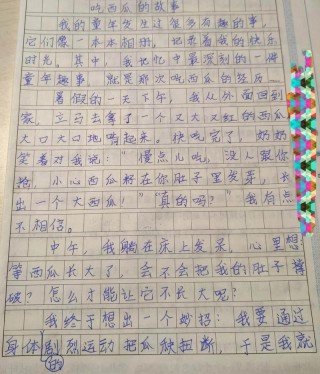 吃西瓜的故事
我的童年发生过很多有趣的事，
它们像一本本相册，记录着我的快乐
时光。其中，我记忆中最深刻的一件
童年趣事，就是那次吃西瓜的经历。
暑假的一天下午，我从外面回到
家，立马去拿了一个又大又红的西瓜
大口大口地啃起来。快吃完了，奶奶
笑着对我说："慢点儿吃，没人跟你
抢，小心西瓜籽在你肚子里发芽，长
出一个大西瓜！""真的吗？"我有点
不相信。
中午，我躺在床上发呆，心里想
等西瓜长大了，会不会把我的肚子撑
破？怎么才能让它不长大呢？
我终于想出一个妙招：我要通过
身体剧烈运动把瓜秧扭断，于是我就
的